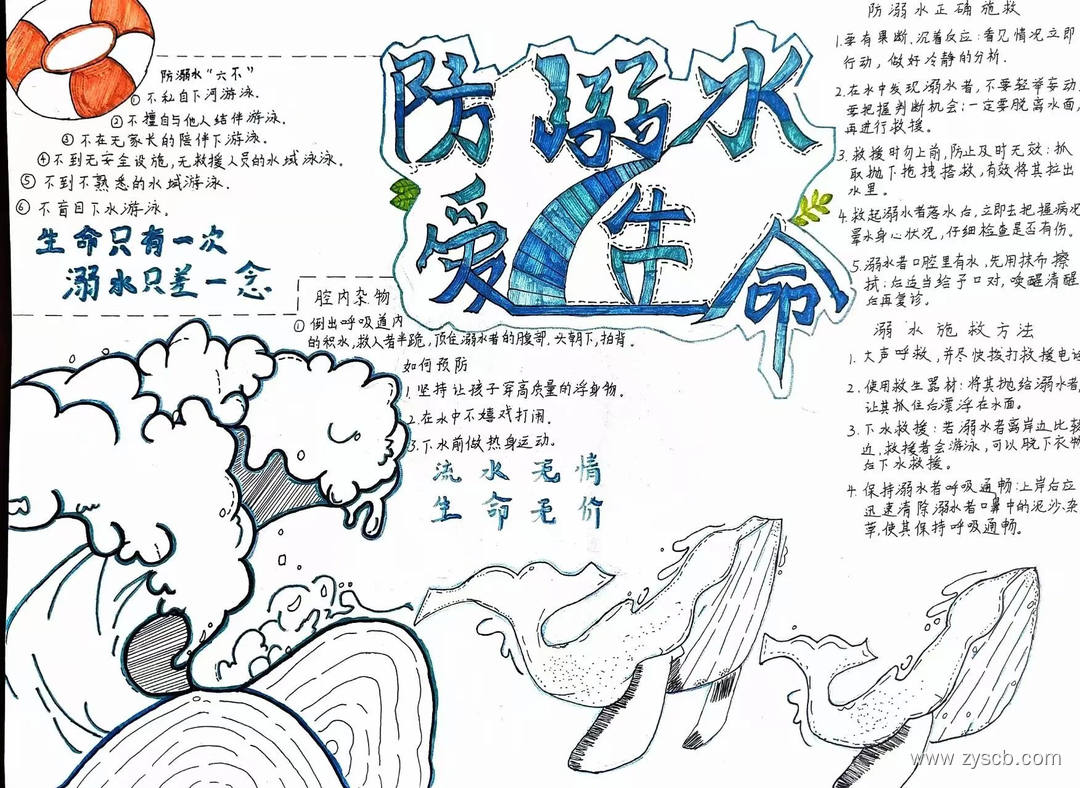 防溺水
爱生命
防溺水“六不”
①不私自下河游泳.
②不擅自与他人结伴游泳.
③不在无家长的陪伴下游泳.
④不到无安全设施,无救援人员的水域泳泳.
⑤不到不熟悉的水域游泳.
⑥不盲目下水游泳.
生命只有一次
溺水只差一念
腔内杂物
①倒出呼吸道内
的积水,救人者半跪,顶住溺水者的腹部,头朝下,拍背.
如何预防
1.坚持让孩子穿高质量的浮身物.
2.在水中不嬉戏打闹.
3.下水前做热身运动.
流水无情
生命无价
防溺水正确施救
1.要有果断、沉着反应:看见情况立即
行动,做好冷静的分析.
2.在水中发现溺水者,不要轻举妄动.
要把握判断机会:一定要脱离水面,
再进行救援。
3.救援时勿上前,防止及时无效:抓
取抛下拖拽搭救,有效将其拉出
水里。
4.救起溺水者落水后,立即去把握病况
晕水身心状况,仔细检查是否有伤。
5.溺水者口腔里有水,先用抹布擦
拭:后适当给予口对,唤醒清醒
后再复诊。
溺水施救方法
1.大声呼救,并尽快拨打救援电话
2.使用救生器材:将其抛给溺水者,
让其抓住后漂浮在水面。
3.下水救援:若溺水者离岸边比较
边,救援者会游泳,可以脱下衣物
后下水救援。
4.保持溺水者呼吸通畅:上岸后应
迅速清除溺水者口鼻中的泥沙、杂
草,使其保持呼吸通畅。
www.zyscb.com